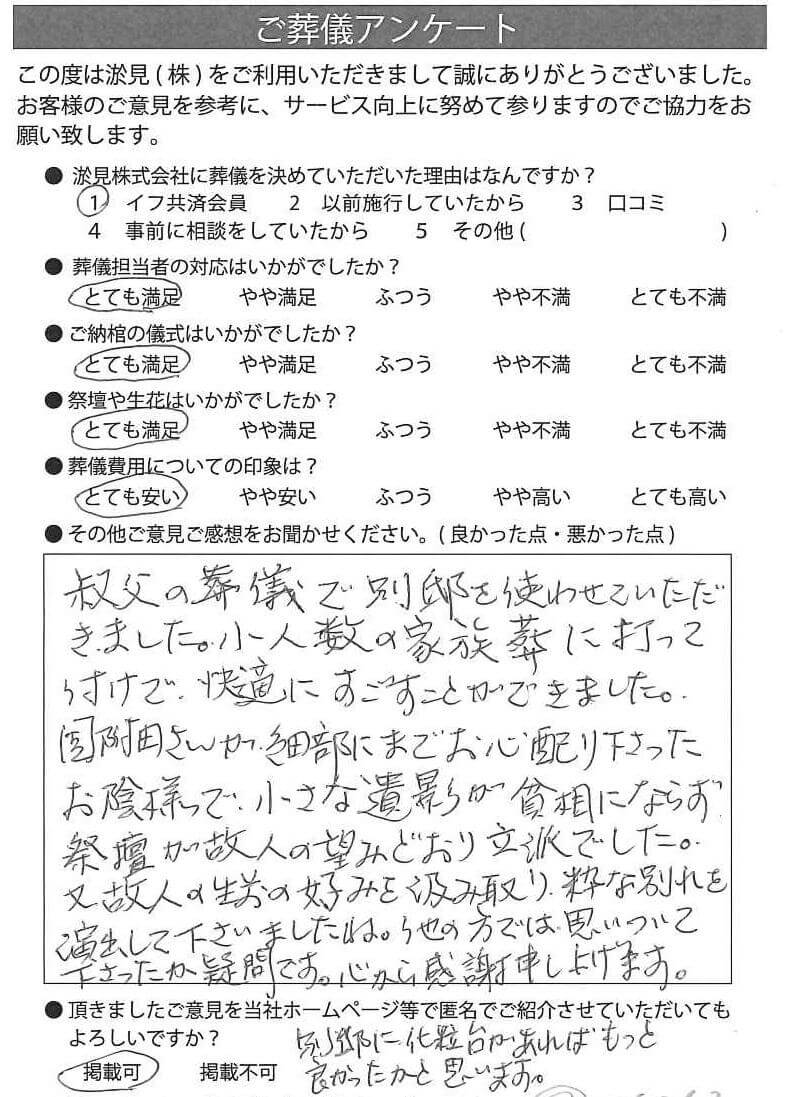 ご葬儀アンケート
この度は淤見(株)をご利用いただきまして誠にありがとうございました。
お客様のご意見を参考に、サービス向上に努めて参りますのでご協力をお
願い致します。
● 淤見株式会社に葬儀を決めていただいた理由はなんですか?
1 イフ共済会員 2 以前施行していたから 3 口コミ
4 事前に相談をしていたから 5 その他( )
● 葬儀担当者の対応はいかがでしたか?
とても満足 やや満足 ふつう やや不満 とても不満
● ご納棺の儀式はいかがでしたか?
とても満足 やや満足 ふつう やや不満 とても不満
● 祭壇や生花はいかがでしたか?
とても満足 やや満足 ふつう やや不満 とても不満
● 葬儀費用についての印象は?
とても安い やや安い ふつう やや高い とても高い
● その他ご意見ご感想をお聞かせください。(良かった点・悪かった点)
叔父の葬儀で別邸を使わせていただ
きました。小人数の家族葬に打って
付けで、快適にすごすことができました。
園附田さんが、細部にまでお心配り下さった
お陰様で、小さな遺影が貧相にならず
祭壇が故人の望みどおり立派でした。
又、故人の生前の好みを汲み取り、粋な別れを
演出して下さいましたね。他の方では思いついて
下さったか疑問です。心から感謝申し上げます。
● 頂きましたご意見を当社ホームページ等で匿名でご紹介させていただいても
よろしいですか?
掲載可 掲載不可
別邸に化粧台があればもっと
良かったかと思います。